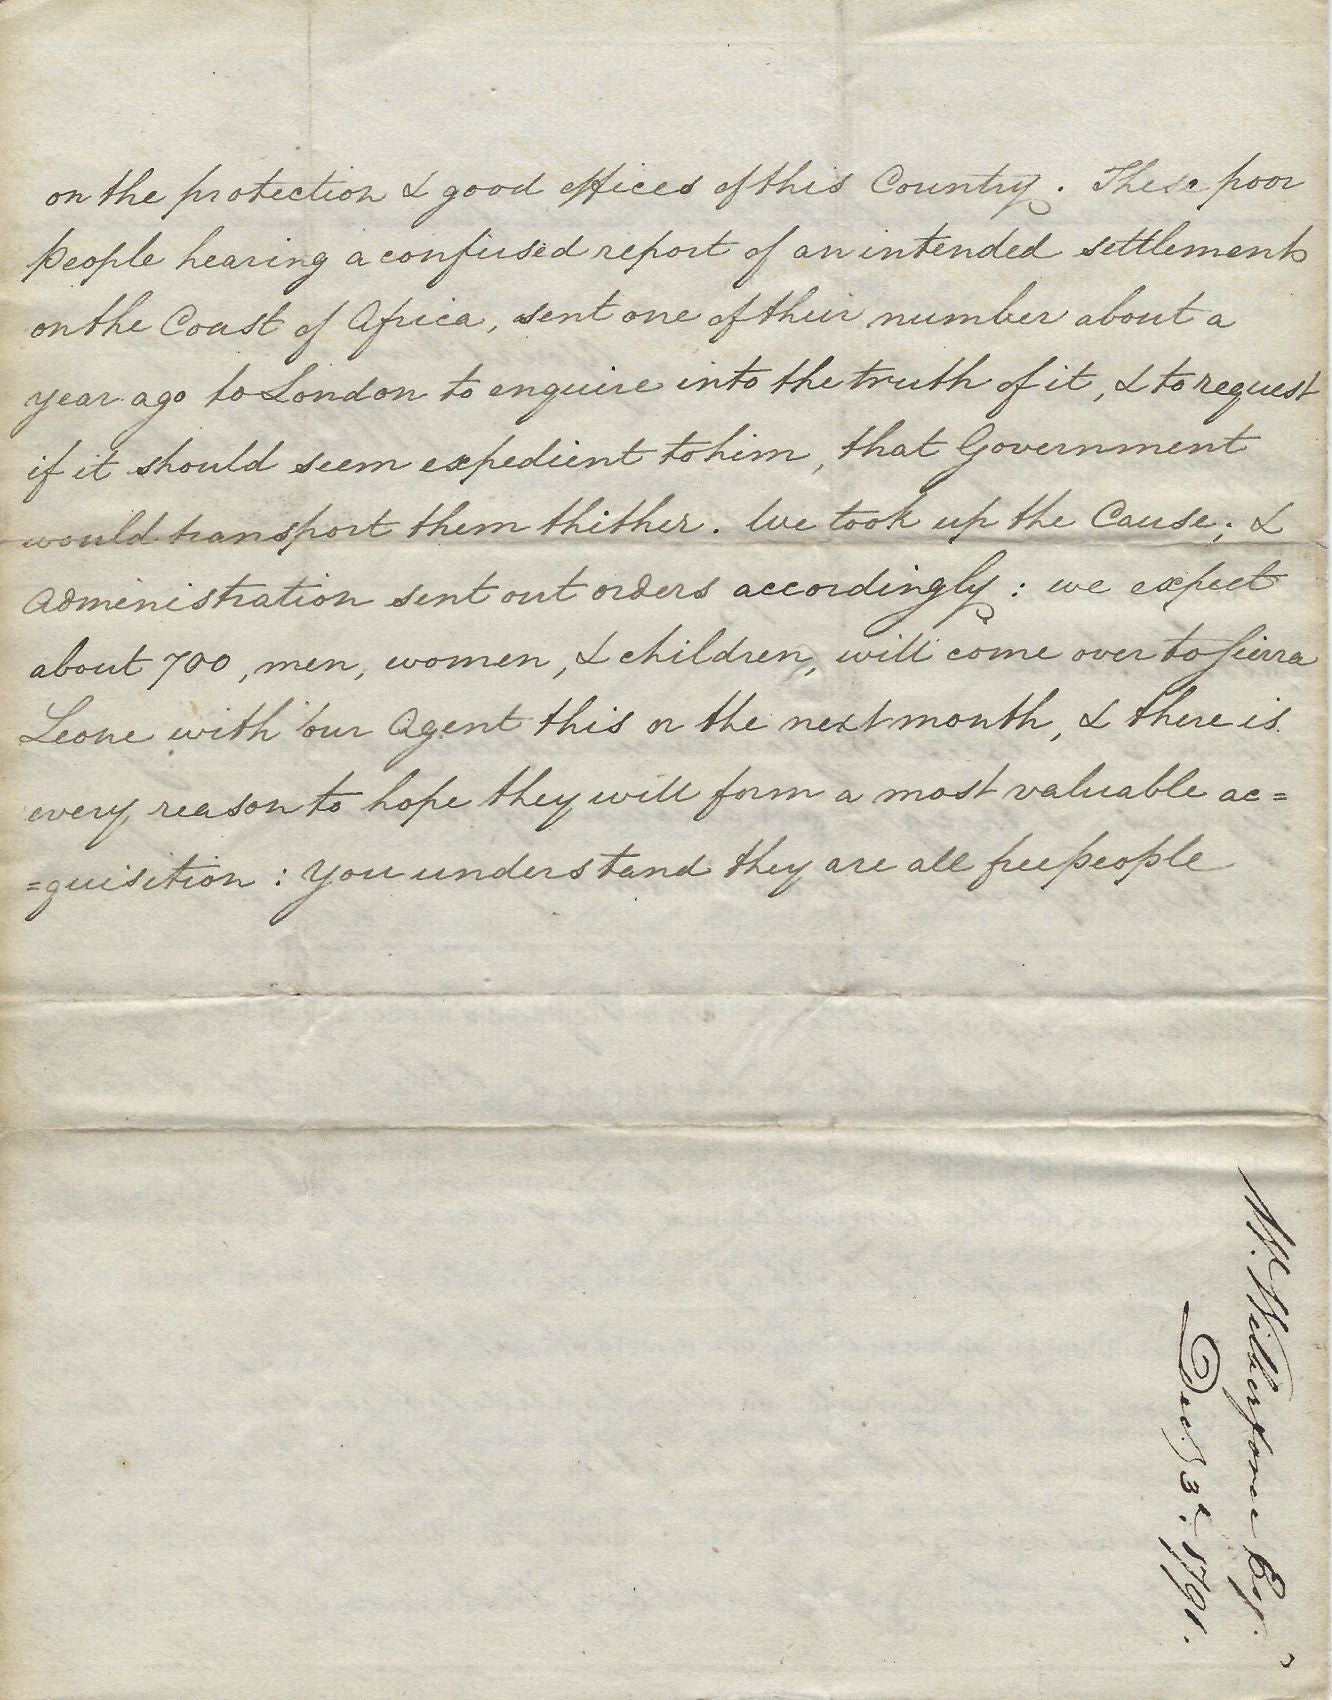 on the protection & good offices of this Country. These poor
people hearing a confused report of an intended settlement
on the Coast of Africa, sent one of their number about a
year ago to London to enquire into the truth of it, & to request
if it should seem expedient to him, that Government
would transport them thither. We took up the Cause; &
Administration sent out orders accordingly: we expect
about 700, men, women, & children, will come over to Sierra
Leone with our Agent this or the next month, & there is
every reason to hope they will form a most valuable ac=
=quisition: you understand they are all free people
Wm. Wilberforce Esq.
Decr. 3d. 1791.